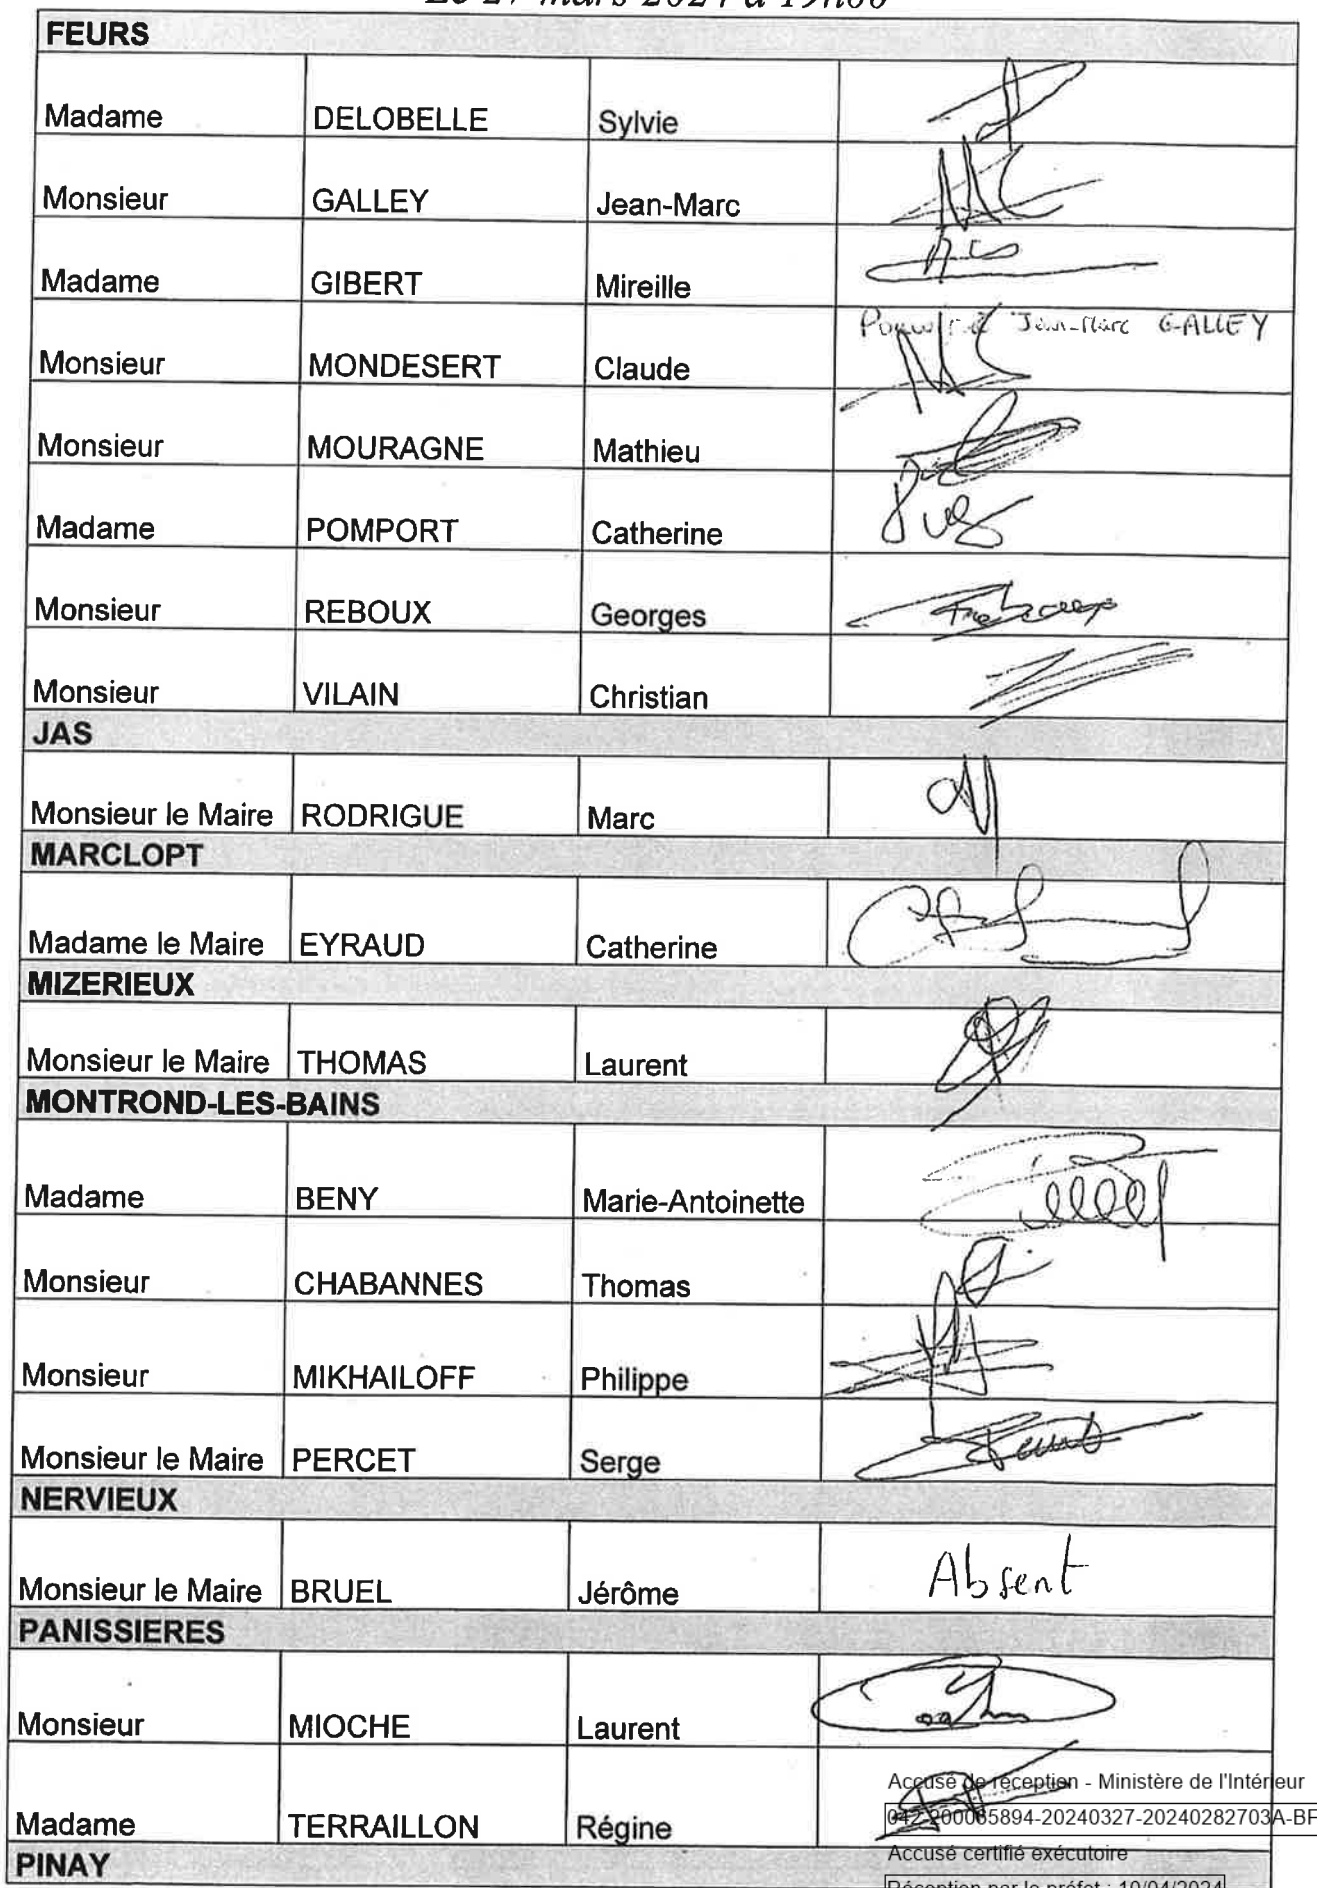 Le 27 mars 2024 à 19h00
FEURS
Madame DELOBELLE Sylvie
Monsieur GALLEY Jean-Marc
Madame GIBERT Mireille
Jean-Marc GALLEY
Monsieur MONDESERT Claude
Monsieur MOURAGNE Mathieu
Madame POMPORT Catherine
Monsieur REBOUX Georges
Monsieur VILAIN Christian
JAS
Monsieur le Maire RODRIGUE Marc
MARCLOPT
Madame le Maire EYRAUD Catherine
MIZERIEUX
Monsieur le Maire THOMAS Laurent
MONTROND-LES-BAINS
Madame BENY Marie-Antoinette
Monsieur CHABANNES Thomas
Monsieur MIKHAILOFF Philippe
Monsieur le Maire PERCET Serge
NERVIEUX
Monsieur le Maire BRUEL Jérôme Absent
PANISSIERES
Monsieur MIOCHE Laurent
Accusé de réception - Ministère de l'Intérieur
042-200065894-20240327-20240282703A-BF
Madame TERRAILLON Régine
Accusé certifié exécutoire
PINAY
Réception par le préfet : 10/04/2024